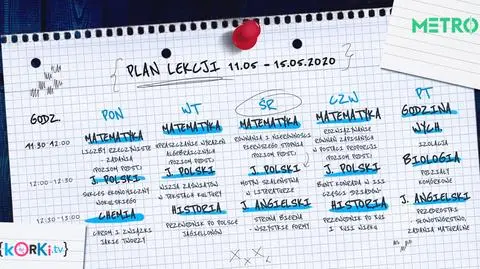 METRO
{ PLAN LEKCJI 11.05 - 15.05.2020 }
GODZ. PON WT ŚR CZW PT
11:30-12:00
MATEMATYKA
LICZBY RZECZYWISTE
- ZADANIA
(POZIOM PODST.)
MATEMATYKA
UPRASZCZANIE WYRAŻEŃ
ALGEBRAICZNYCH
(POZIOM PODST.)
MATEMATYKA
RÓWNANIA I NIERÓWNOŚCI
PIERWSZEGO STOPNIA
(POZIOM PODST.)
MATEMATYKA
ROZWIĄZYWANIE
RÓWNAŃ ZAPISANYCH
W POSTACI PROPORCJI
(POZIOM PODST.)
GODZINA
WYCH.
IZOLACJA
12:00-12:30
J. POLSKI
SUKCES EKONOMICZNY
WOKULSKIEGO
J. POLSKI
WIZJA ZAŚWIATÓW
W TEKSTACH KULTURY
J. POLSKI
MOTYW SZALEŃSTWA
W LITERATURZE
J. POLSKI
BUNT KONRADA W III
CZĘŚCI DZIADÓW
BIOLOGIA
PODZIAŁY
KOMÓRKOWE
12:30-13:00
CHEMIA
CHROM I ZWIĄZKI
JAKIE TWORZY
HISTORIA
PRZEWODNIK PO POLSCE
JAGIELLONÓW
J. ANGIELSKI
STRONA BIERNA
- WSZYSTKIE FORMY
HISTORIA
PRZEWODNIK PO XVI
I XVII WIEKU
J. ANGIELSKI
PRZEDROSTKI
- SŁOWOTWÓRSTWO,
ZADANIA MATURALNE
{KORKI.tv}